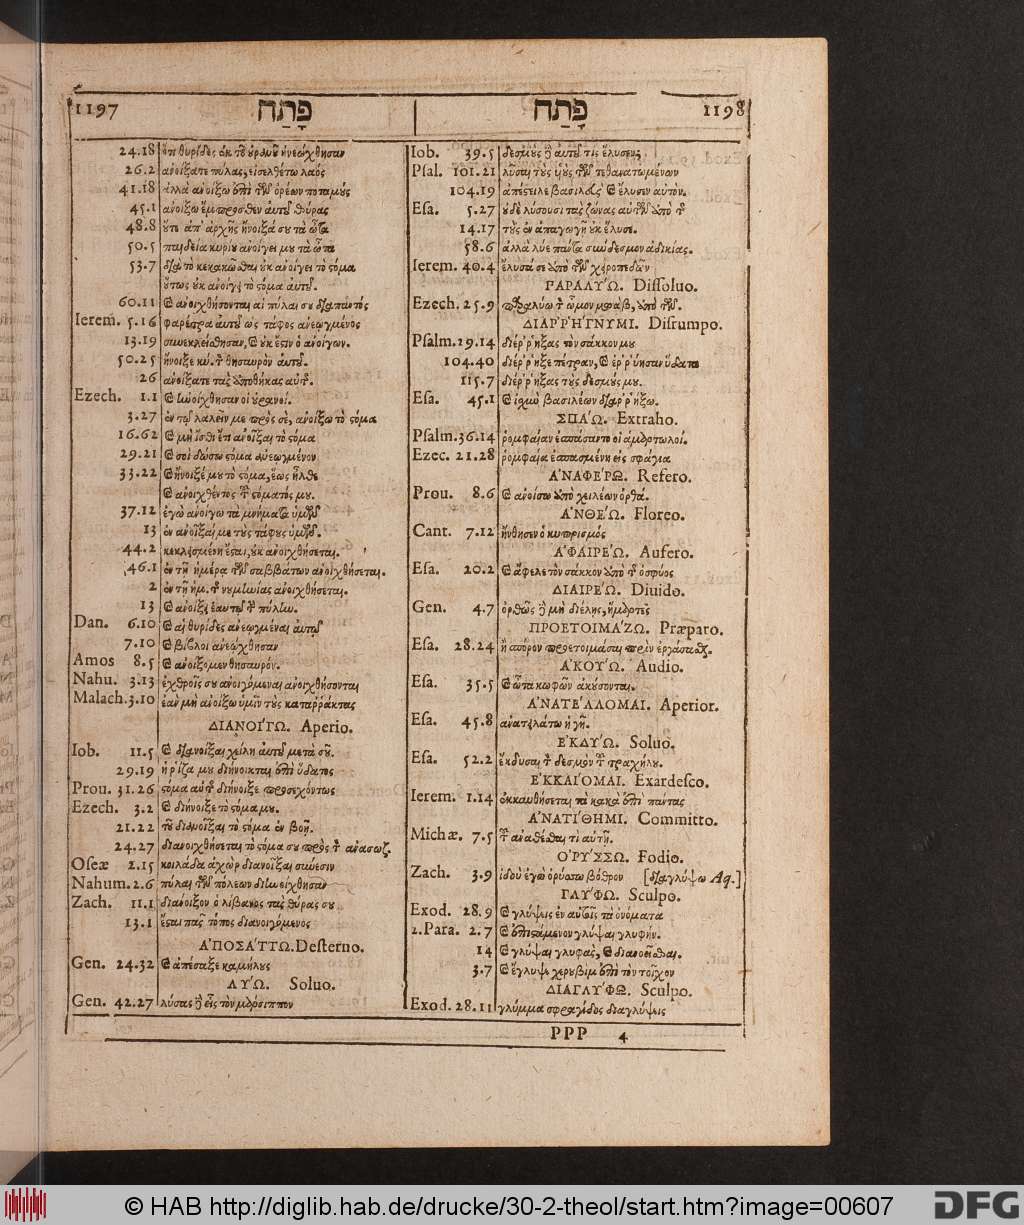 1197 פָּתַח
24.18 ὅτι θυρίδες ἐκ τοῦ οὐρανοῦ ἠνεῴχθησαν
26.2 ἀνοίξατε πύλας, εἰσελθέτω λαὸς
41.18 ἀλλὰ ἀνοίξω ἐπὶ τῶν ὀρέων ποταμοὺς
45.1 ἀνοίξω ἔμπροσθεν αὐτοῦ θύρας
48.8 οὔτε ἀπ' ἀρχῆς ἤνοιξά σου τὰ ὦτα
50.5 παιδεία κυρίου ἀνοίγει μου τὰ ὦτα
53.7 διὰ τὸ κεκακῶσθαι οὐκ ἀνοίγει τὸ στόμα
οὕτως οὐκ ἀνοίγει τὸ στόμα αὐτοῦ.
60.11 καὶ ἀνοιχθήσονται αἱ πύλαι σου διαπαντός
Ierem. 5.16 φαρέτρα αὐτοῦ ὡς τάφος ἀνεῳγμένος
13.19 συνεκλείσθησαν, καὶ οὐκ ἔστιν ὁ ἀνοίγων.
50.25 ἤνοιξε κύ. τὸν θησαυρὸν αὐτοῦ.
26 ἀνοίξατε τὰς ἀποθήκας αὐτῆς.
Ezech. 1.1 καὶ ἠνοίχθησαν οἱ οὐρανοί.
3.27 ἐν τῷ λαλεῖν με πρὸς σὲ, ἀνοίξω τὸ στόμα
16.62 καὶ μὴ ἔσθι ἔτι ἀνοῖξαι τὸ στόμα
29.21 καὶ σοὶ δώσω στόμα ἀνεῳγμένον
33.22 καὶ ἤνοιξέ μου τὸ στόμα, ἕως ἦλθε
καὶ ἀνοιχθέντος τοῦ στόματός μου.
37.12 ἐγὼ ἀνοίγω τὰ μνήματα ὑμῶν
13 ἐν ἀνοῖξαί με τοὺς τάφους ὑμῶν.
44.2 κεκλεισμένη ἔσται, οὐκ ἀνοιχθήσεται.
46.1 ἐν τῇ ἡμέρᾳ τῶν σαββάτων ἀνοιχθήσεται.
2 ἐν τῇ ἡμ. τῆς νυμηνίας ἀνοιχθήσεται.
13 καὶ ἀνοίξει ἑαυτῷ τὴν πύλην.
Dan. 6.10 καὶ αἱ θυρίδες ἀνεῳγμέναι αὐτῷ
7.10 καὶ βίβλοι ἀνεῴχθησαν
Amos 8.5 καὶ ἀνοίξομεν θησαυρόν.
Nahu. 3.13 ἐχθροῖς σου ἀνοιγόμεναι ἀνοιχθήσονται
Malach. 3.10 ἐὰν μὴ ἀνοίξω ὑμῖν τοὺς καταῤῥάκτας
ΔΙΑΝΟΊΓΩ. Aperio.
Iob. 11.5 καὶ διανοίξαι χείλη αὐτοῦ μετὰ σοῦ.
29.19 ἡ ῥίζα μου διήνοικται ἐπὶ ὕδατος
Prou. 31.26 στόμα αὐτῆς διήνοιξε προσεχόντως
Ezech. 3.2 καὶ διήνοιξε τὸ στόμα μου.
21.22 τοῦ διανοῖξαι τὸ στόμα ἐν βοῇ.
24.27 διανοιχθήσεται τὸ στόμα σου πρὸς τὸν ἀνασωζ.
Oseæ 2.15 κοιλάδα ἀχὼρ διανοῖξαι σύνεσιν
Nahum. 2.6 πύλαι τῶν πόλεων διηνοίχθησαν
Zach. 11.1 διάνοιξον ὁ λίβανος τὰς θύρας σου
13.1 ἔσται πᾶς τόπος διανοιγόμενος
ἈΠΟΣΆΤΤΩ. Desterno.
Gen. 24.32 καὶ ἀπέσαξε καμήλους
ΛΥΏ. Soluo.
Gen. 42.27 λύσας δὲ εἷς τὸν μάρσιππον
פָּתַח 1198
Iob. 39.5 δεσμοὺς δὲ αὐτοῦ τίς ἔλυσεν;
Psal. 101.21 λῦσαι τοὺς υἱοὺς τῶν τεθανατωμένων
104.19 ἀπέστειλε βασιλεὺς καὶ ἔλυσεν αὐτόν.
Esa. 5.27 οὐδὲ λύσουσι τὰς ζώνας αὐτῶν ἀπὸ τῆς
14.17 τοὺς ἐν ἀπαγωγῇ οὐκ ἔλυσε.
58.6 ἀλλὰ λύε πάντα σύνδεσμον ἀδικίας.
Ierem. 40.4 ἔλυσά σε ἀπὸ τῶν χειροπεδῶν
ΠΑΡΑΛΥΏ. Dissoluo.
Ezech. 25.9 παραλύω τὸν ὦμον μωὰβ, ἀπὸ τῶν.
ΔΙΑῤῬΉΓΝΥΜΙ. Disrumpo.
Psalm. 29.14 διέῤῥηξας τὸν σάκκον μου
104.40 διέῤῥηξε πέτραν, καὶ ἐῤῥύησαν ὕδατα
115.7 διέῤῥηξας τοὺς δεσμούς μου.
Esa. 45.1 καὶ ἰσχὺν βασιλέων διαῤῥήξω.
ΣΠΆΩ. Extraho.
Psalm. 36.14 ῥομφαίαν ἐσπάσαντο οἱ ἁμαρτωλοί.
Ezec. 21.28 ῥομφαία ἐσπασμένη εἰς σφάγια
ἈΝΑΦΈΡΩ. Refero.
Prou. 8.6 καὶ ἀνοίσω ἀπὸ χειλέων ὀρθά.
ἈΝΘΈΩ. Floreo.
Cant. 7.12 ἤνθησεν ὁ κυπρισμός
ἈΦΑΙΡΈΩ. Aufero.
Esa. 20.2 καὶ ἄφελε τὸν σάκκον ἀπὸ τῆς ὀσφύος
ΔΙΑΙΡΈΩ. Diuido.
Gen. 4.7 ὀρθῶς δὲ μὴ διέλης, ἥμαρτες
ΠΡΟΕΤΟΙΜΆΖΩ. Præparo.
Esa. 28.24 ἢ σπόρον προετοιμάσει πρὶν ἐργάσασθ.
ἈΚΟΎΩ. Audio.
Esa. 35.5 καὶ ὦτα κωφῶν ἀκούσονται.
ἈΝΑΤΈΛΛΟΜΑΙ. Aperior.
Esa. 45.8 ἀνατειλάτω ἡ γῆ.
ἘΚΔΎΩ. Soluo.
Esa. 52.2 ἔκδυσαι τὸν δεσμὸν τοῦ τραχήλου.
ἘΚΚΑΊΟΜΑΙ. Exardesco.
Ierem. 1.14 ἐκκαυθήσεται τὰ κακὰ ἐπὶ πάντας
ἈΝΑΤΊΘΗΜΙ. Committo.
Michæ. 7.5 τοῦ ἀναθέσθαι τὶ αὐτῇ.
ὈΡΎΣΣΩ. Fodio.
Zach. 3.9 ἰδοὺ ἐγὼ ὀρύσσω βόθρον [διαγλύψω Aq.]
ΓΛΎΦΩ. Sculpo.
Exod. 28.9 καὶ γλύψεις ἐν αὐτοῖς τὰ ὀνόματα
2. Para. 2.7 καὶ ἐπιστάμενον γλύψαι γλυφήν.
14 καὶ γλύψαι γλυφὰς, καὶ διανοεῖσθαι.
3.7 καὶ ἔγλυψε χερουβὶμ ἐπὶ τὸν τοῖχον
ΔΙΑΓΛΎΦΩ. Sculpo.
Exod. 28.11 γλύμμα σφραγῖδος διαγλύψεις
PPP 4
© HAB http://diglib.hab.de/drucke/30-2-theol/start.htm?image=00607
DFG